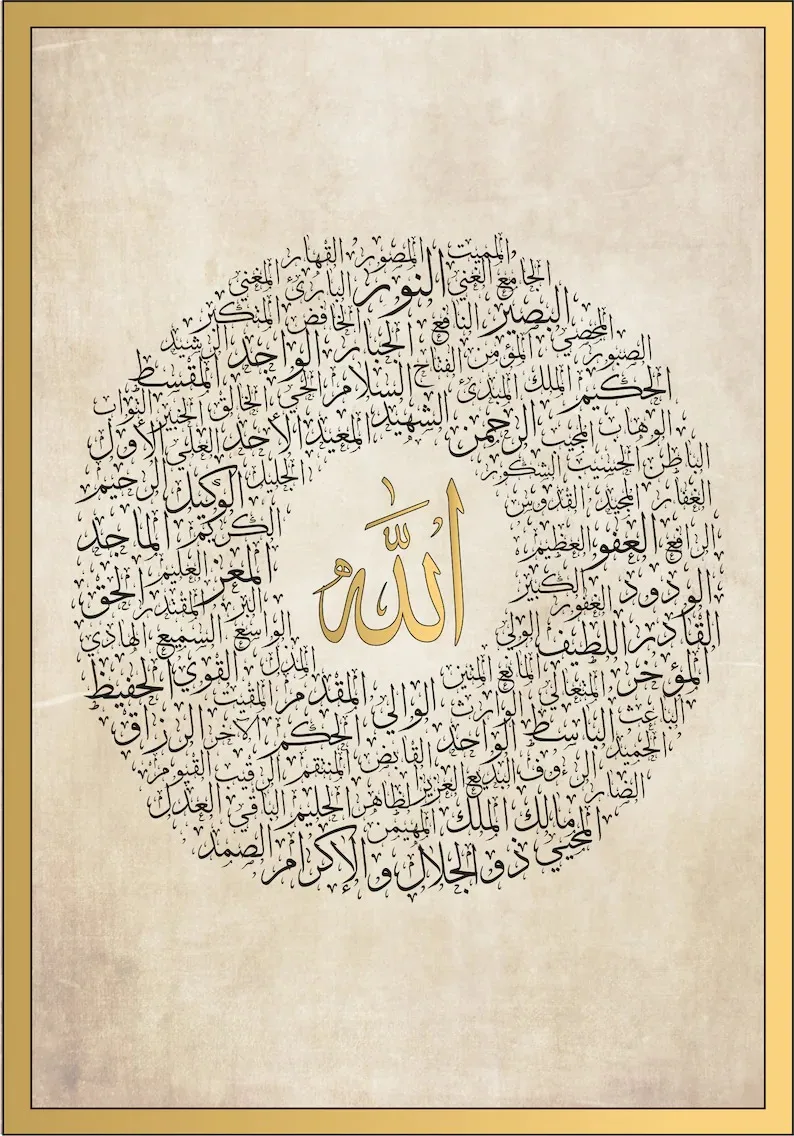 المميت المصور القهار
الجامع الغني النور البارئ المغني
المحصي البصير النافع الخافض المتكبر
الصبور المؤمن الفتاح الجبار الواحد الرشيد
الحكيم الملك المبدئ السلام الحي المقسط
الوهاب المجيب الرحمن الشهيد المعيد الأحد الخالق الخبير التواب
الباطن الحسيب الشكور العلي الأول
الغفار المجيد القدوس الجليل الوكيل الرحيم
الله
الرافع العفو العظيم الكريم الماجد
الودود الغفور الكبير المعز العليم الحق
القادر اللطيف الولي البر المقتدر
الواسع السميع الهادي
المؤخر المتعالي المانع المتين المذل القوي الحفيظ
الباعث الباسط الوارث الوالي المقدم المقيت
الحميد الواحد الحكم الآخر الرزاق
الضار الرءوف البديع القابض المنتقم الرقيب القيوم
العزيز الظاهر الحليم الباقي العدل
المحيي مالك الملك المهيمن
ذو الجلال والإكرام الصمد